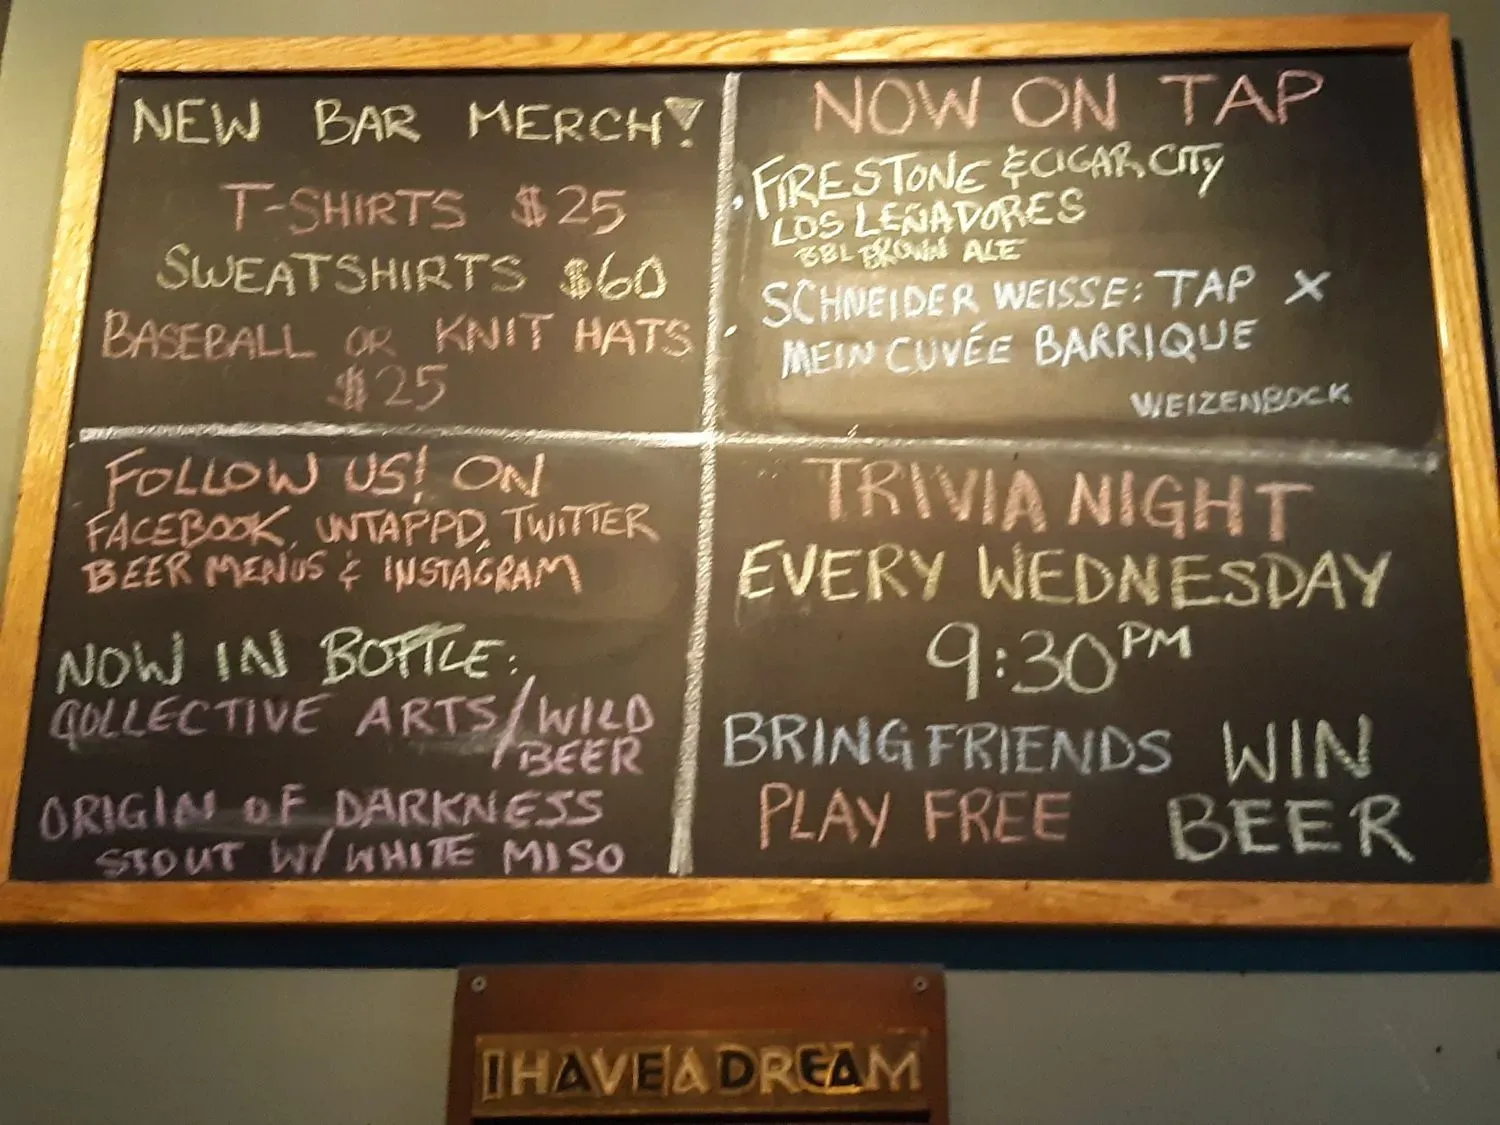 NEW BAR MERCH!
T-SHIRTS $25
SWEATSHIRTS $60
BASEBALL OR KNIT HATS
$25
NOW ON TAP
• FIRESTONE & CIGAR CITY
LOS LEÑADORES
BBL BROWN ALE
• SCHNEIDER WEISSE: TAP X
MEIN CUVÉE BARRIQUE
WEIZENBOCK
FOLLOW US! ON
FACEBOOK, UNTAPPD, TWITTER
BEER MENUS & INSTAGRAM
NOW IN BOTTLE:
COLLECTIVE ARTS/WILD
BEER
ORIGIN OF DARKNESS
STOUT W/ WHITE MISO
TRIVIA NIGHT
EVERY WEDNESDAY
9:30PM
BRING FRIENDS WIN
PLAY FREE BEER
I HAVE A DREAM